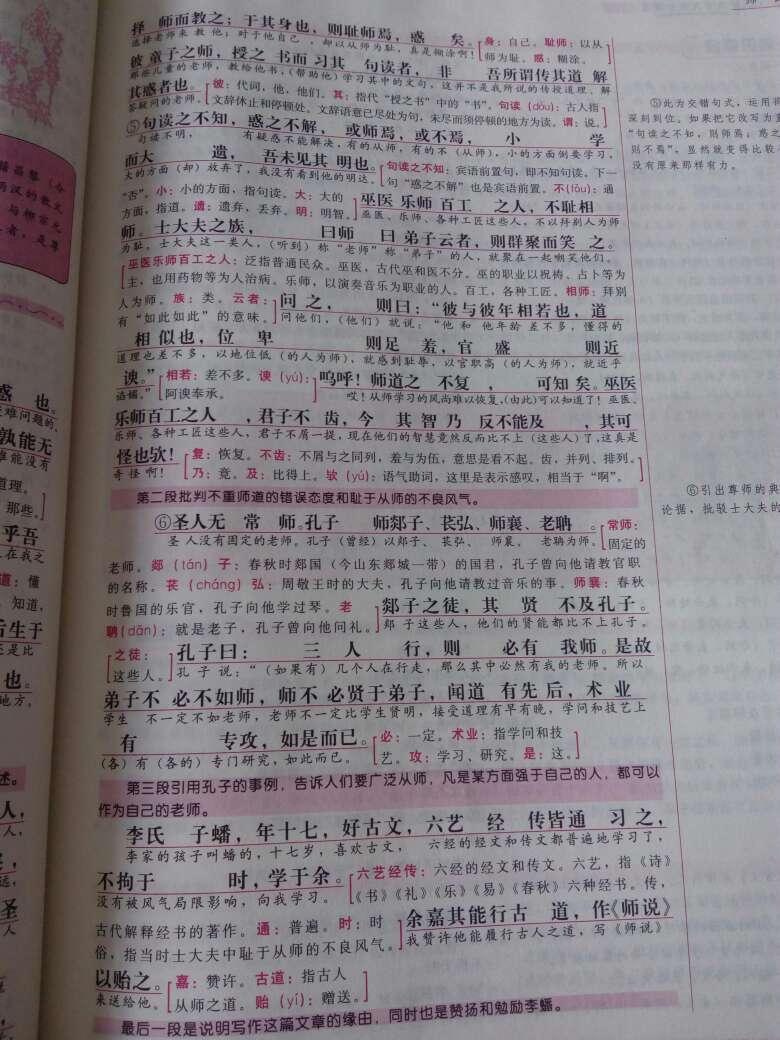 择 师而教之；于其身也，则耻师焉，惑 矣。[身：自己。耻师：以从
选择老师来 教 他；对于他自己 ，却以从师为耻，真是糊涂啊！ 师为耻。惑：糊涂。]
彼 童子之师，授之 书而习其 句读者， 非 吾所谓传其道 解
那些儿童的老师，教给他书，(帮助他) 学习其中的文句，这并不是我所说的传授道理、解
其惑者也。[彼：代词，他、他们。其：指代“授之书”中的“书”。句读 (dòu)：古人指
答疑问的老师。 文辞休止和停顿处。文辞语意已尽处为句，未尽而须停顿的地方为读。谓：说。]
⑤句读之不知，惑之不解， 或师焉，或不焉， 小 学
句读不明， 有疑惑不能解决，有的从师，有的不 (从师)，小的方面倒要学习，
而大 遗， 吾未见其 明也。[句读之不知：宾语前置句，即不知句读。下一
大的方面 (却) 放弃了，我没有看到他的明达。 句“惑之不解”也是宾语前置。不(fǒu)：通
“否”。小：小的方面，指句读。大：大的
方面，指道。遗：遗弃、丢弃。明：明智。]
巫医 乐师 百工 之人，不耻相
巫医、乐师、各种工匠这些人，不以拜别人为师
师。士大夫之族， 曰师 曰 弟子云者，则群聚而笑 之。
为耻，士大夫这一类人，(听到) 称“老师”称“弟子”的人，就聚在一起嘲笑他们。
[巫医乐师百工之人：泛指普通民众。巫医，古代巫和医不分。巫的职业以祝祷、占卜等为
主，也用药物等为人治病。乐师，以演奏音乐为职业的人。百工，各种工匠。相师：拜别
人为师。族：类。云者：
有“如此如此”的意味。]
问 之， 则曰：“彼与彼年相若也，道
问他们，(他们) 就说：“他 和 他年龄 差不多，懂得的
相 似也，位 卑 则足 羞，官 盛 则近
道理也差不多，以地位低 (的人为师)，就感到耻辱，以官职高 (的人为师)，就近乎
谀。”[相若：差不多。谀 (yú)：
谄媚。” 阿谀奉承。]
呜呼！师道之 不复 ， 可知 矣。巫医
哎！从师学习的风尚难以恢复，(由此) 可以知道了！巫医、
乐师百工之人 ，君子不 齿，今 其 智 乃 反不能及 ，其可
乐师、各种工匠这些人，君子不屑一提，现在他们的智慧竟然反而比不上 (这些人) 了，这真是
怪也欤！[复：恢复。不齿：不屑与之同列，羞与为伍，意思是看不起。齿，并列、排列。
奇 怪 啊！ 乃：竟。及：比得上。欤 (yú)：语气助词，这里是表示感叹，相当于“啊”。]
第二段批判不重师道的错误态度和耻于从师的不良风气。
⑥圣人无 常 师。孔子 师郯子、苌弘、师襄、老聃 。[常师：
圣 人没有固定的老师。孔子 (曾经) 以郯子、 苌弘、 师襄、 老聃为师。 固定的
老师。郯 (tán) 子：春秋时郯国 (今山东郯城一带) 的国君，孔子曾向他请教官职
的名称。苌 (cháng) 弘：周敬王时的大夫，孔子向他请教过音乐的事。师襄：春秋
时鲁国的乐官，孔子向他学过琴。老
聃(dān)：就是老子，孔子曾向他问礼。]
郯子之徒，其 贤 不及孔子。
郯 子这些人，他们的贤能都比不上孔子。
[之徒：
这些人。]
孔子曰： 三 人 行，则 必有 我师。是故
孔 子 说：“(如果有) 几个人在行走，那么其中必然有我的老师。所以
弟子不 必不如师，师不 必贤于弟子，闻道 有先后，术 业
学生 不一定不如老师，老师不一定比学生贤明，接受道理有早有晚，学问和技艺上
有 专攻，如是而已。[必：一定。术业：指学问和技
(各) 有 (各的) 专门研究，如此而已。 艺。攻：学习、研究。是：这。]
第三段引用孔子的事例，告诉人们要广泛从师，凡是某方面强于自己的人，都可以
作为自己的老师。
李氏 子蟠，年十七，好古文，六艺 经 传皆通 习 之，
李家的孩子叫蟠的，十七岁，喜欢古文， 六经的经文和传文都普遍地学习了，
不拘于 时，学于余。[六艺经传：六经的经文和传文。六艺，指《诗》
没有被风气局限影响，向我学习。 《书》《礼》《乐》《易》《春秋》六种经书。传，
古代解释经书的著作。通：普遍。时：时
俗，指当时士大夫中耻于从师的不良风气。]
余嘉其能行古 道，作《师说》
我赞许他能履行古人之道，写《师说》
以贻之。[嘉：赞许。古道：指古人
来送给他。 从师之道。贻 (yí)：赠送。]
最后一段是说明写作这篇文章的缘由，同时也是赞扬和勉励李蟠。
⑤此为交错句式，运用得
深刻到位。如果把它改写为直
“句读之不知，则师焉；惑之
则不焉”。显然就变得比较
没有原来那样有力。
⑥引出尊师的典
论据，批驳士大夫的
两汉的散文
与柳宗元
者，是尊
惑 也。
难问题的，
孰能无
谁能没有
道理。
那些。
乎吾
在我之
道：懂
知道，
后生于
还是比
也。
地方，
述。
人，
人，
远，
圣
人